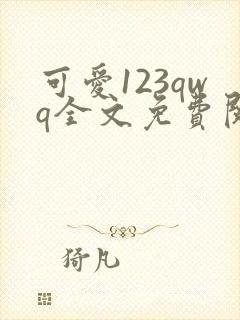 可愛123qw
q全文免費
猗凡